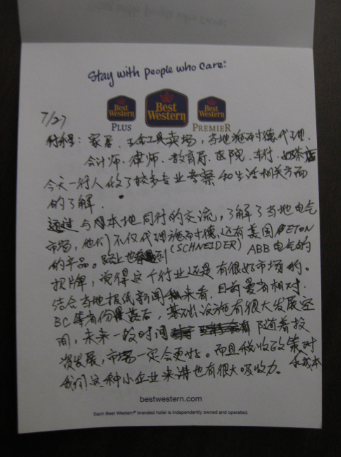 Stay with people who care.
Best Western PLUS
Best Western
Best Western PREMIER
7/27
行程: 家居、五金工具卖场, 当地施耐德代理
会计师、律师、教育局、医院、车行
今天一行人做了较多专业考察和生活相关方面
的了解.
通过与本地同行的交流, 了解了当地电气
市场, 他们不仅代理施耐德, 还有美国 ETON
的产品. (SCHNEIDER) ABB电气的
招牌, 觉得这个行业还是有很好市场的.
结合当地报纸新闻来看. 目前是相对
BC等省份, 基础设施有很大发展空
间, 未来一段时间 随着投
资发展, 市场一定会更好. 而且税收政策对
我们这种小企业来讲也有很大吸力.
bestwestern.com
Each Best Western® branded hotel is independently owned and operated.